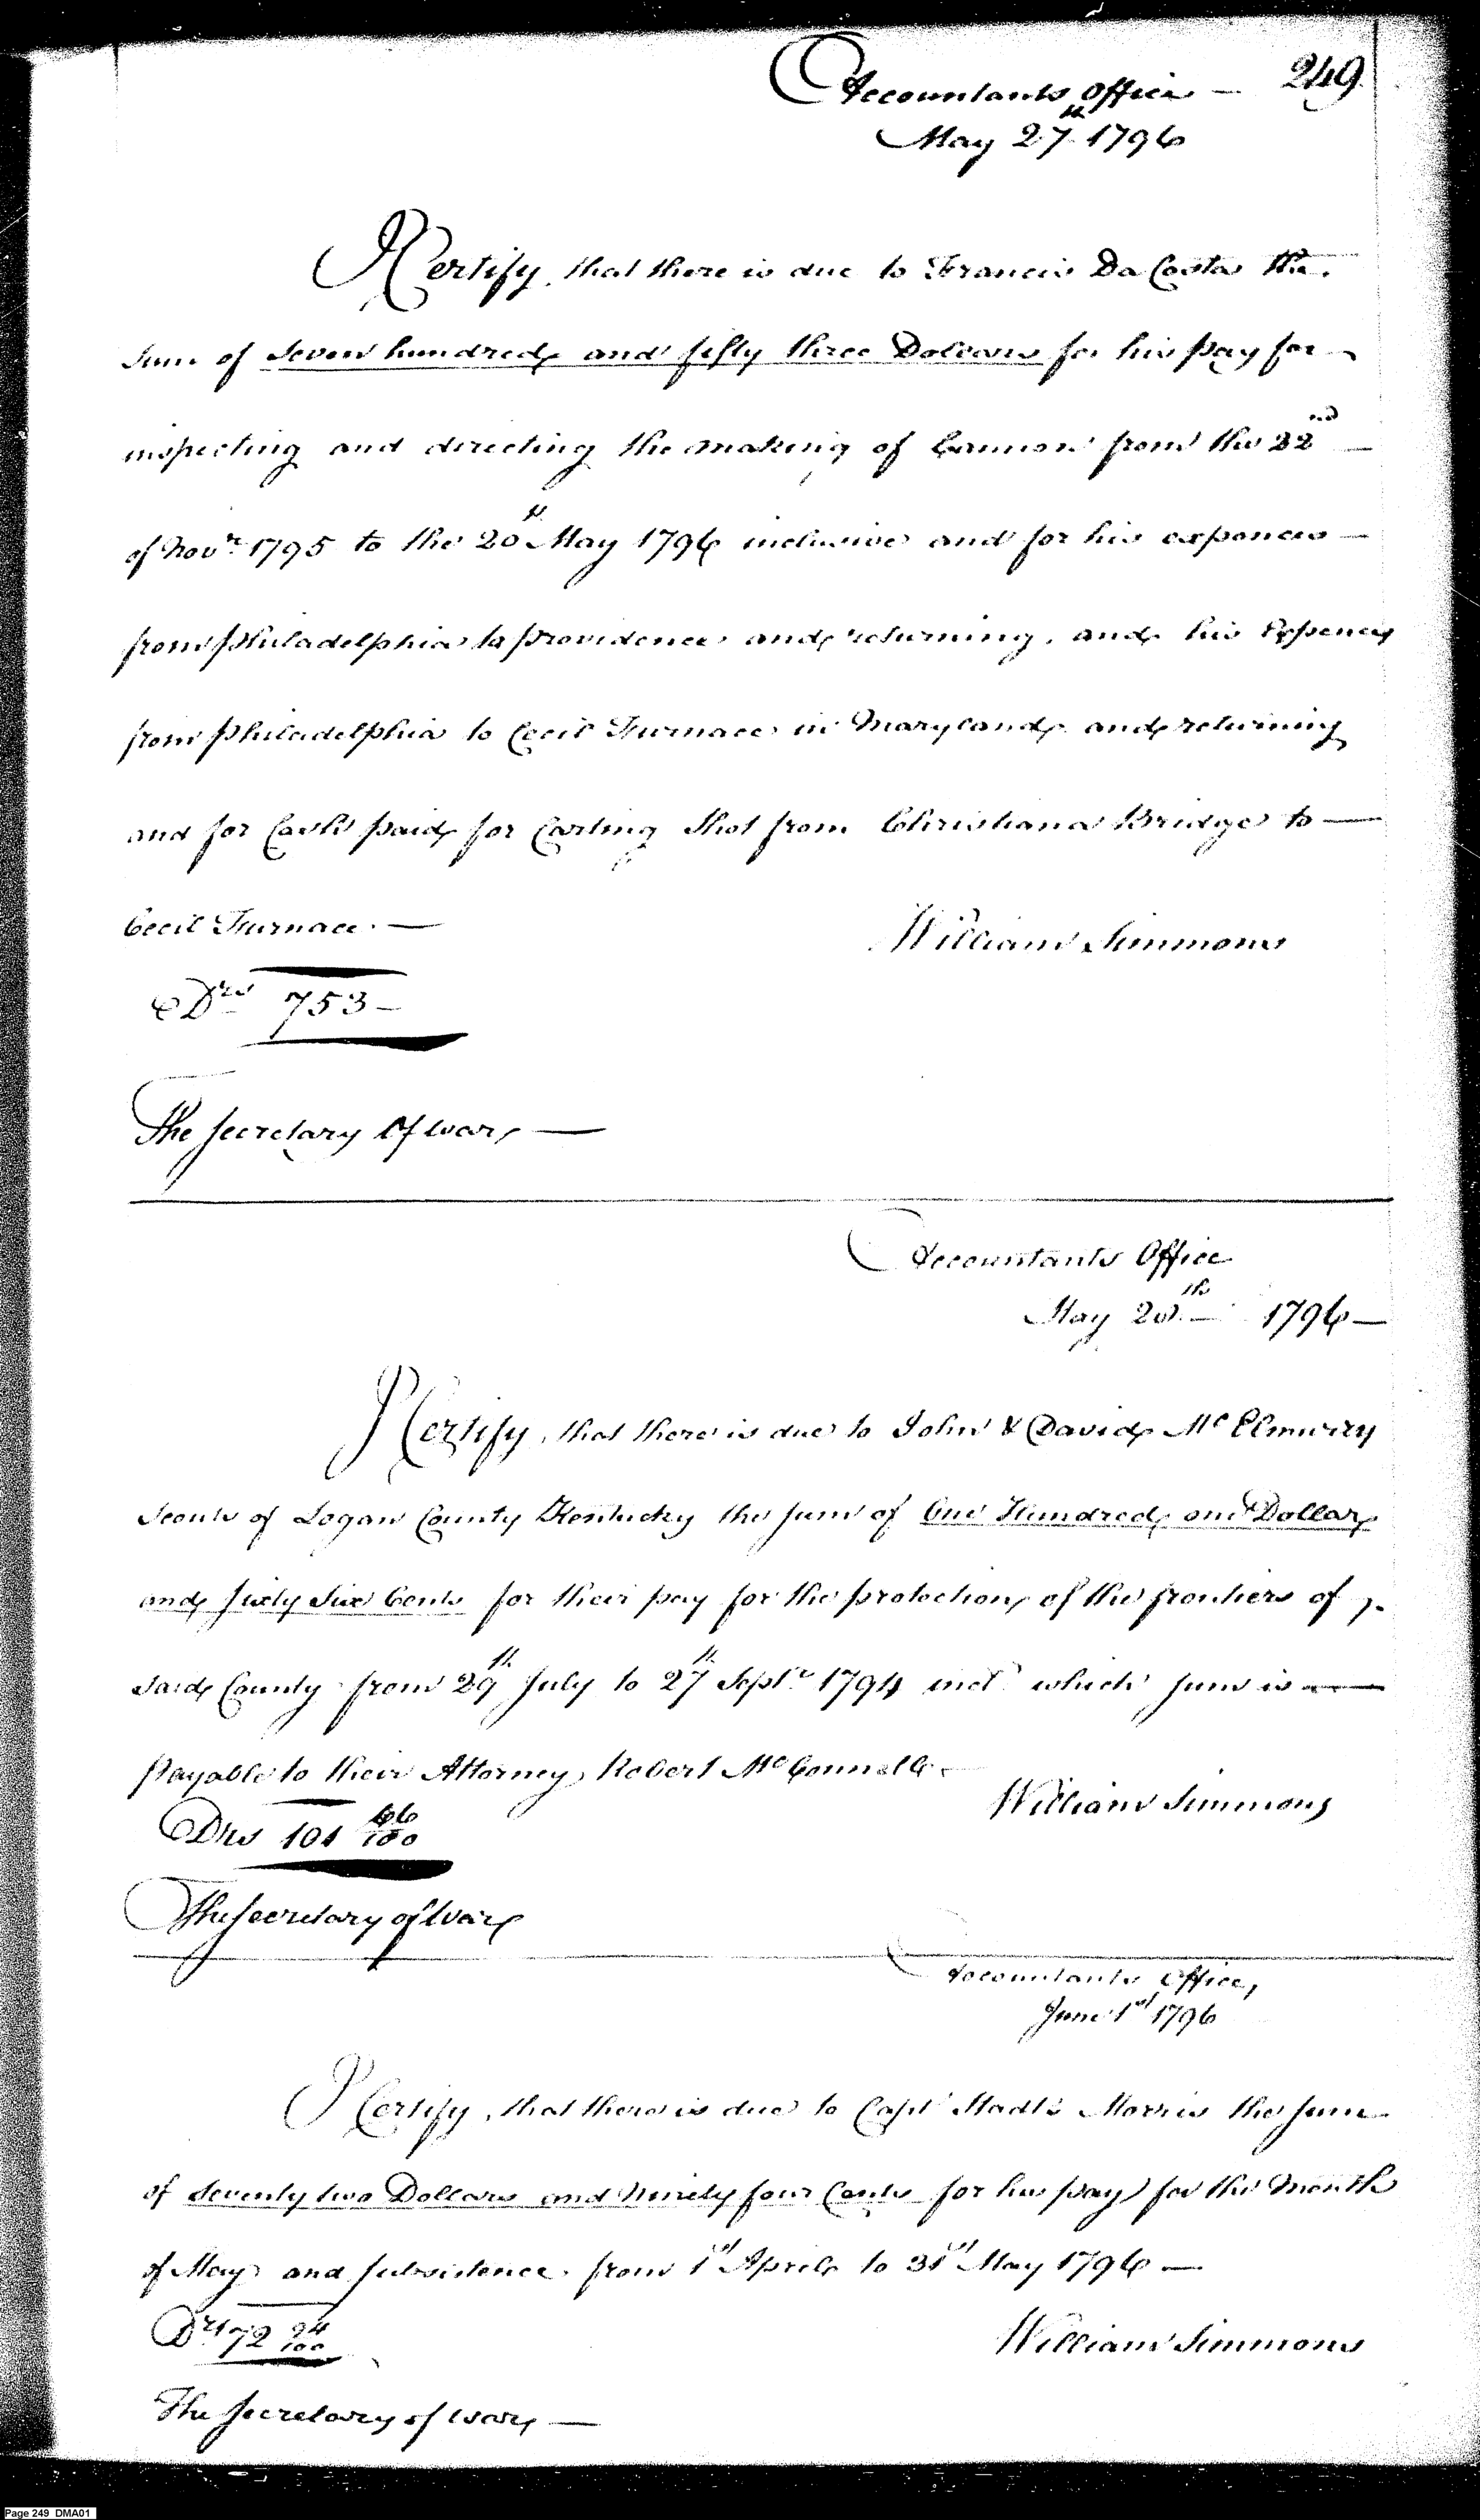 249
Accountants Office —
May 27th 1796
I Certify, that there is due to Francis Da Costa the
Sum of Seven hundred and fifty three Dollars for his pay for
inspecting and directing the making of Cannon from the 22nd —
of Novr 1795 to the 20th May 1796 inclusive and for his expences —
from Philadelphia to Providence and returning, and his Expences
from Philadelphia to Cecil Furnace in Maryland and returning
and for Cash paid for Carting Shot from Christiana Bridge to —
Cecil Furnace. —
William Simmons
Drs 753 —
The Secretary of War —
Accountants Office
May 28th 1796 —
I Certify, that there is due to John & David McElmurry
Scouts of Logan County Kentucky the sum of One Hundred one Dollar
and sixty six Cents for their pay for the protection of the frontiers of
said County from 29th July to 27th Septr 1794 incl which sum is —
Payable to their Attorney Robert McConnell
William Simmons
Drs 101 66/100
The Secretary of War
Accountants Office,
June 1st 1796
I Certify, that there is due to Capt Stadts Morris the sum
of Seventy two Dollars and Ninety four Cents for his pay for the Month
of May and subsistence from 1st April to 31st May 1796 —
Drs 72 94/100
William Simmons
The Secretary of War —
Page 249 DMA01